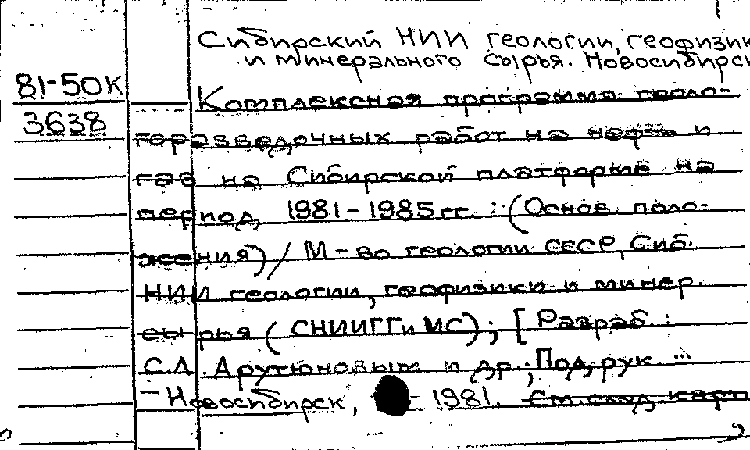 Сибирский НИИ геологии, геофизики
и минерального сырья. Новосибирск
81-50К
Комплексная программа геоло-
3638
горазведочных работ на нефть и
газ на Сибирской платформе на
период 1981-1985 гг. : (Основ. поло-
жения) / М-во геологии СССР, Сиб.
НИИ геологии, геофизики и минер.
сырья (СНИИГГиМС); [Разраб.:
С.А. Арутюновым и др.; Под рук ...
- Новосибирск, - 1981. См. след. карт